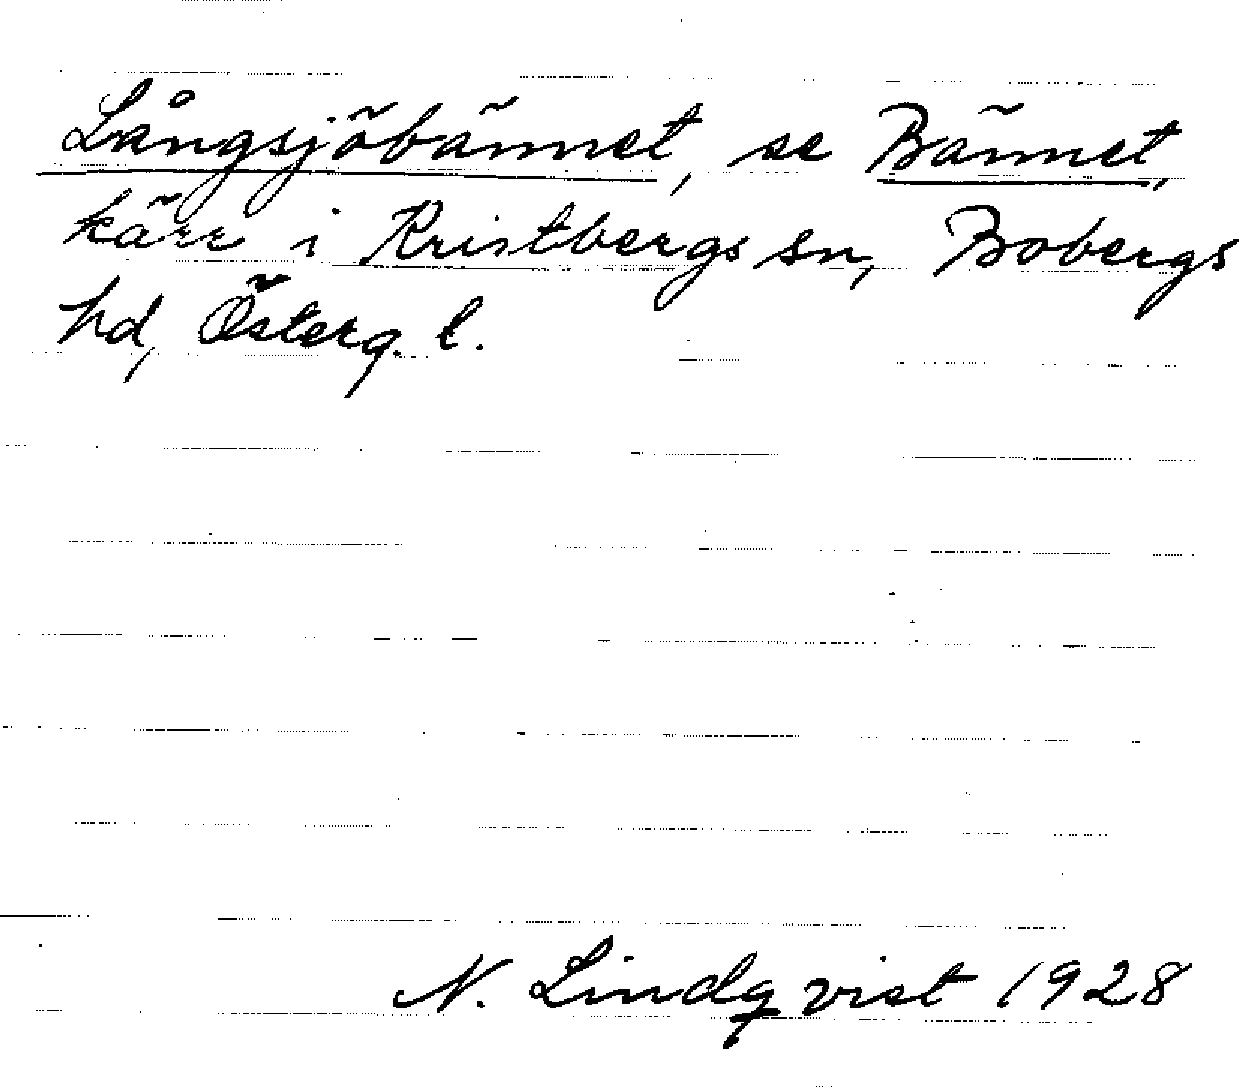 Långsjöbännet, se Bännet,
kärr i Kristbergs sn, Bobergs
hd, Österg. l.
N. Lindqvist 1928